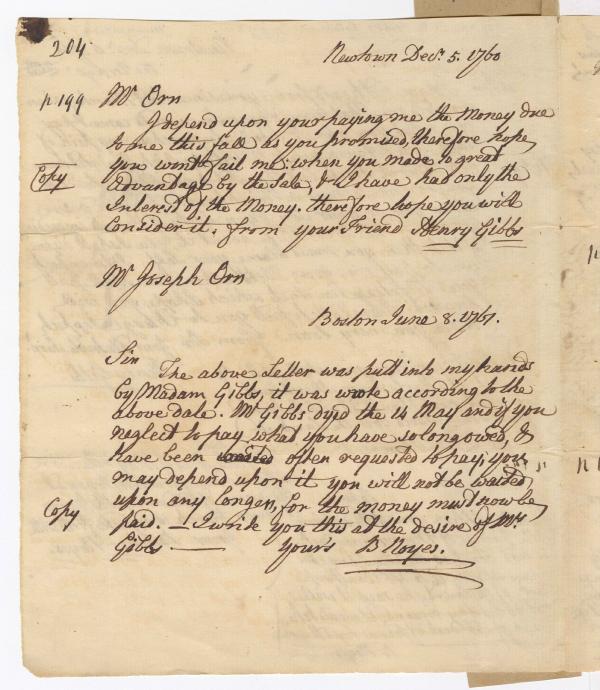 204
Newtown Decr. 5. 1760
p 199 Mr Orn
I depend upon your paying me the Money due
to me this fall as you promised, therefore hope
you wont fail me: when you made so great
Copy
advantage by the Sale, & I have had only the
Interest of the Money. therefore hope you will
Consider it. from your Friend Henry Gibbs
Mr Joseph Orn
Boston June 8. 1761.
Sir
The above Letter was putt into my hands
by Madam Gibbs, it was wrote according to the
above date. Mr Gibbs dyed the 14 May and if you
neglect to pay what you have so long owed, &
have been often requested to pay; you
may depend upon it you will not be waited
upon any longer, for the money must now be
Copy
paid. — I write you this at the desire of Mrs
Gibbs — your's B Noyes.